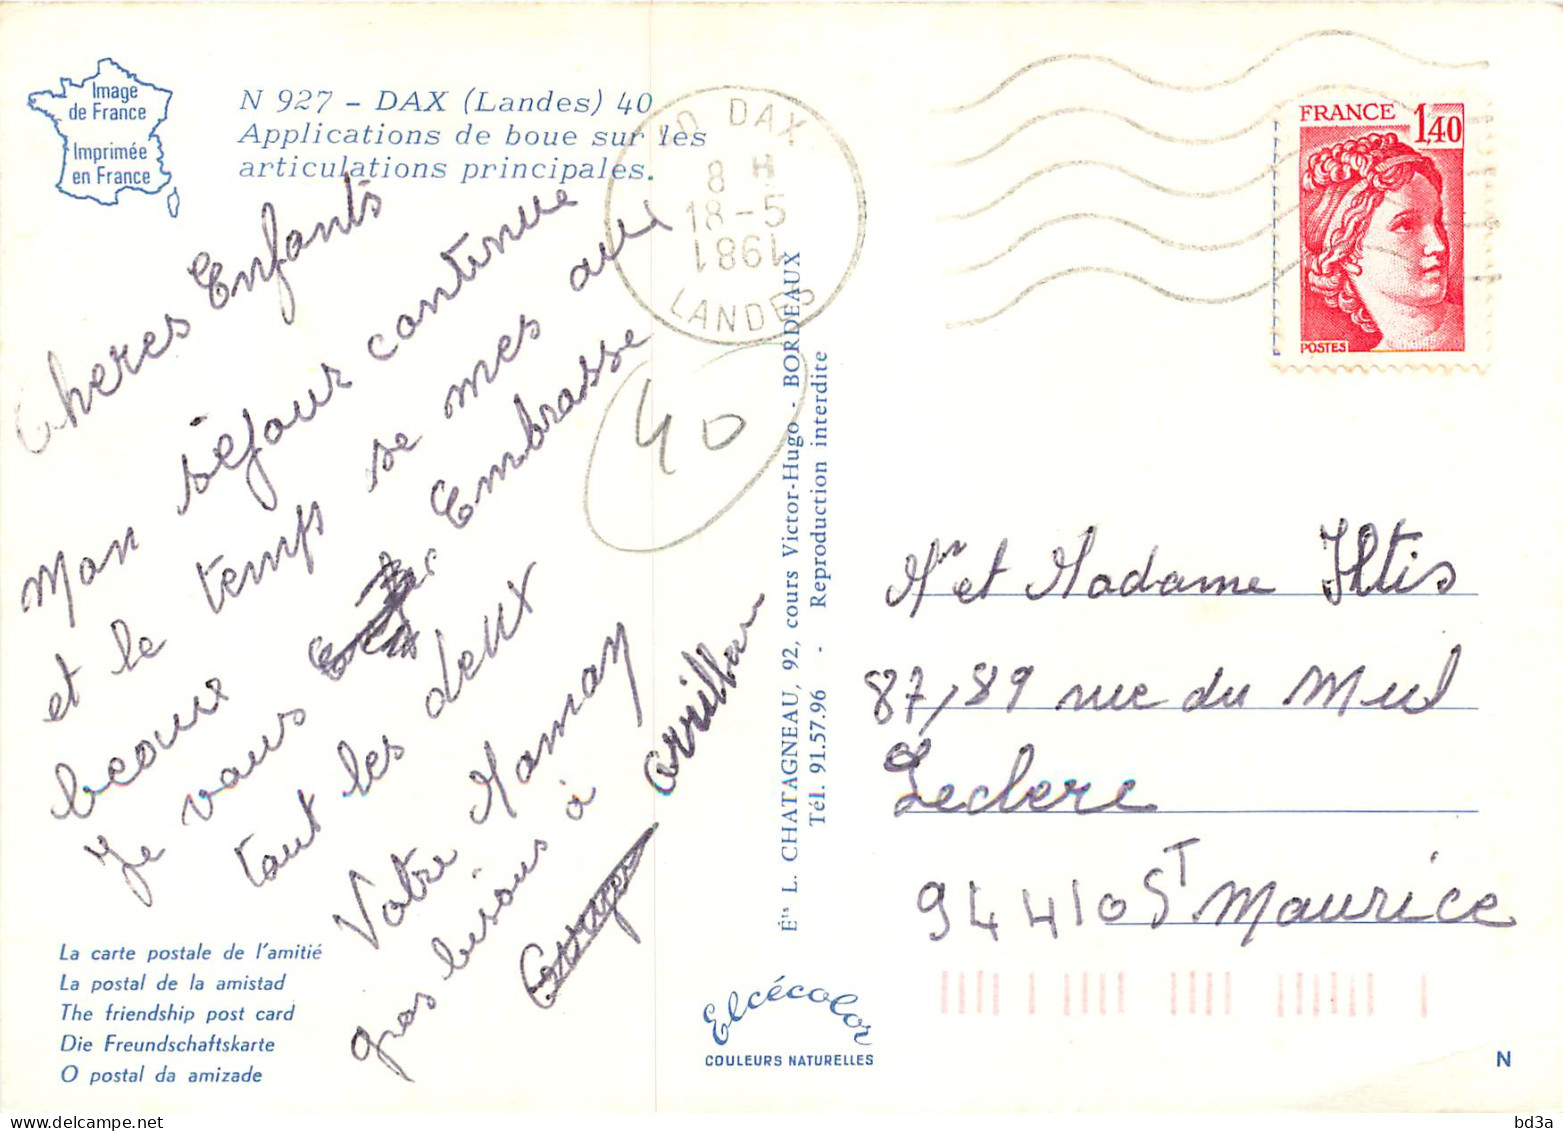 Image
de France
Imprimée
en France
N 927 - DAX (Landes) 40
Applications de boue sur les
articulations principales.
40 DAX
8 H
18-5
1861
LANDES
FRANCE
1,40
POSTES
Cheres Enfants
Mon séjour continue
et le temps se mes au
beaux
Je vous Embrasse
tout les deux
Votre Maman
gros besous à
40
Éts L. CHATAGNEAU, 92, cours Victor-Hugo - BORDEAUX
Tél. 91.57.96 - Reproduction interdite
Mr et Madame Iltis
87/89 rue du Mel
Leclerc
94410 ST Maurice
La carte postale de l'amitié
La postal de la amistad
The friendship post card
Die Freundschaftskarte
O postal da amizade
Elcécolor
COULEURS NATURELLES
N
bd3a